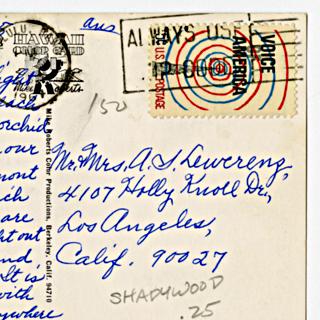 ans
HAWAII
COLOR CARD
Mike Roberts
ALWAYS USE
ZIP CODE
VOICE
AMERICA
U.S. POSTAGE
150
ight
each
orchid
our
mont
ich
are
ht out
and
It is
with
anywhere
Mike Roberts Color Productions, Berkeley, Calif. 94710
Mr. + Mrs. A. S. Lewereng,
4107 Holly Knoll Dr.,
Los Angeles,
Calif. 90027
SHADYWOOD
.25